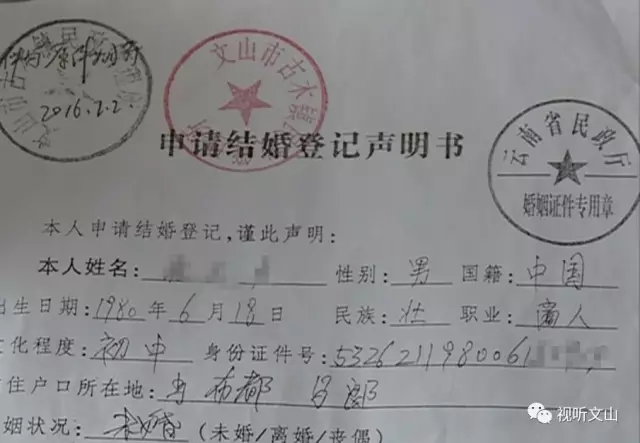 2016.2.2
文山市古木镇
申请结婚登记声明书
云南省民政厅
婚姻证件专用章
本人申请结婚登记,谨此声明:
本人姓名: 性别: 男 国籍: 中国
出生日期: 1980 年 6 月 18 日 民族: 壮 职业: 商人
文化程度: 初中 身份证件号: 5326211980061
住户口所在地: 布都
姻状况: 未婚 (未婚/离婚/丧偶)
视听文山